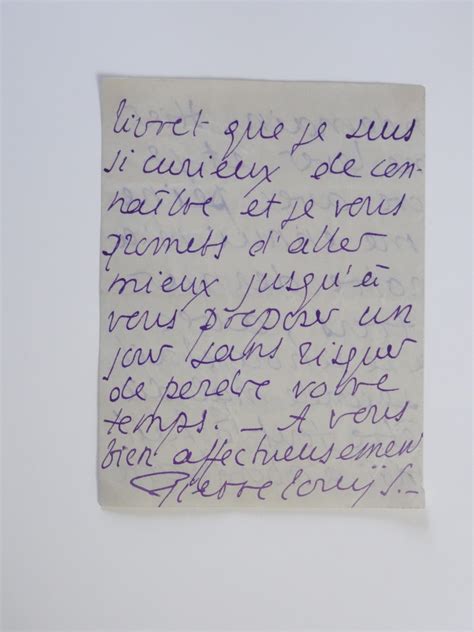 livret que je suis
si curieux de con-
naître et je vous
promets d'aller
mieux jusqu'à
vous proposer un
jour sans risquer
de perdre votre
temps. _ A vous
bien affectueusement
Pierre Louÿs._